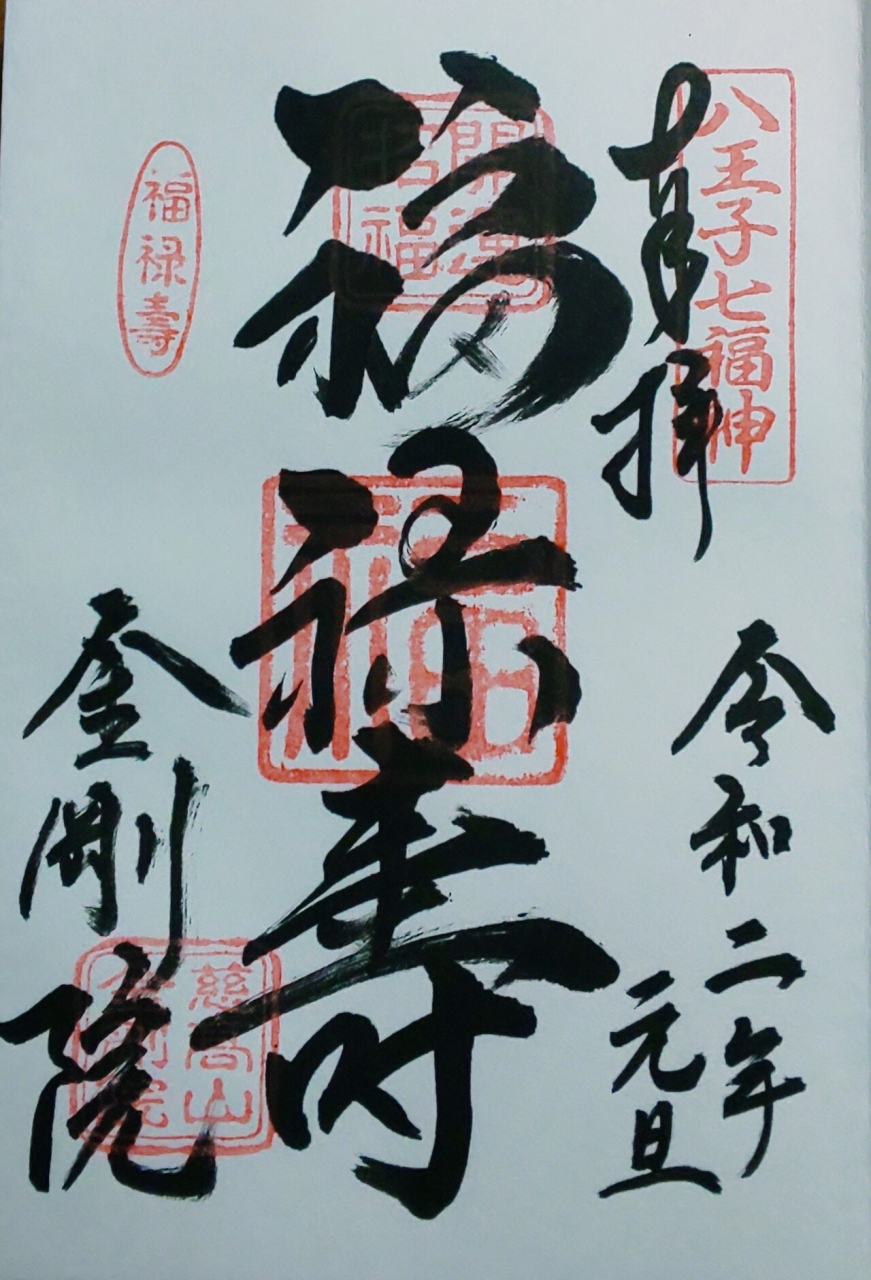 八王子七福神
奉拝
令和二年
元旦
開運
招福
福禄寿
福
慈高山
金剛院
福禄壽
金剛院